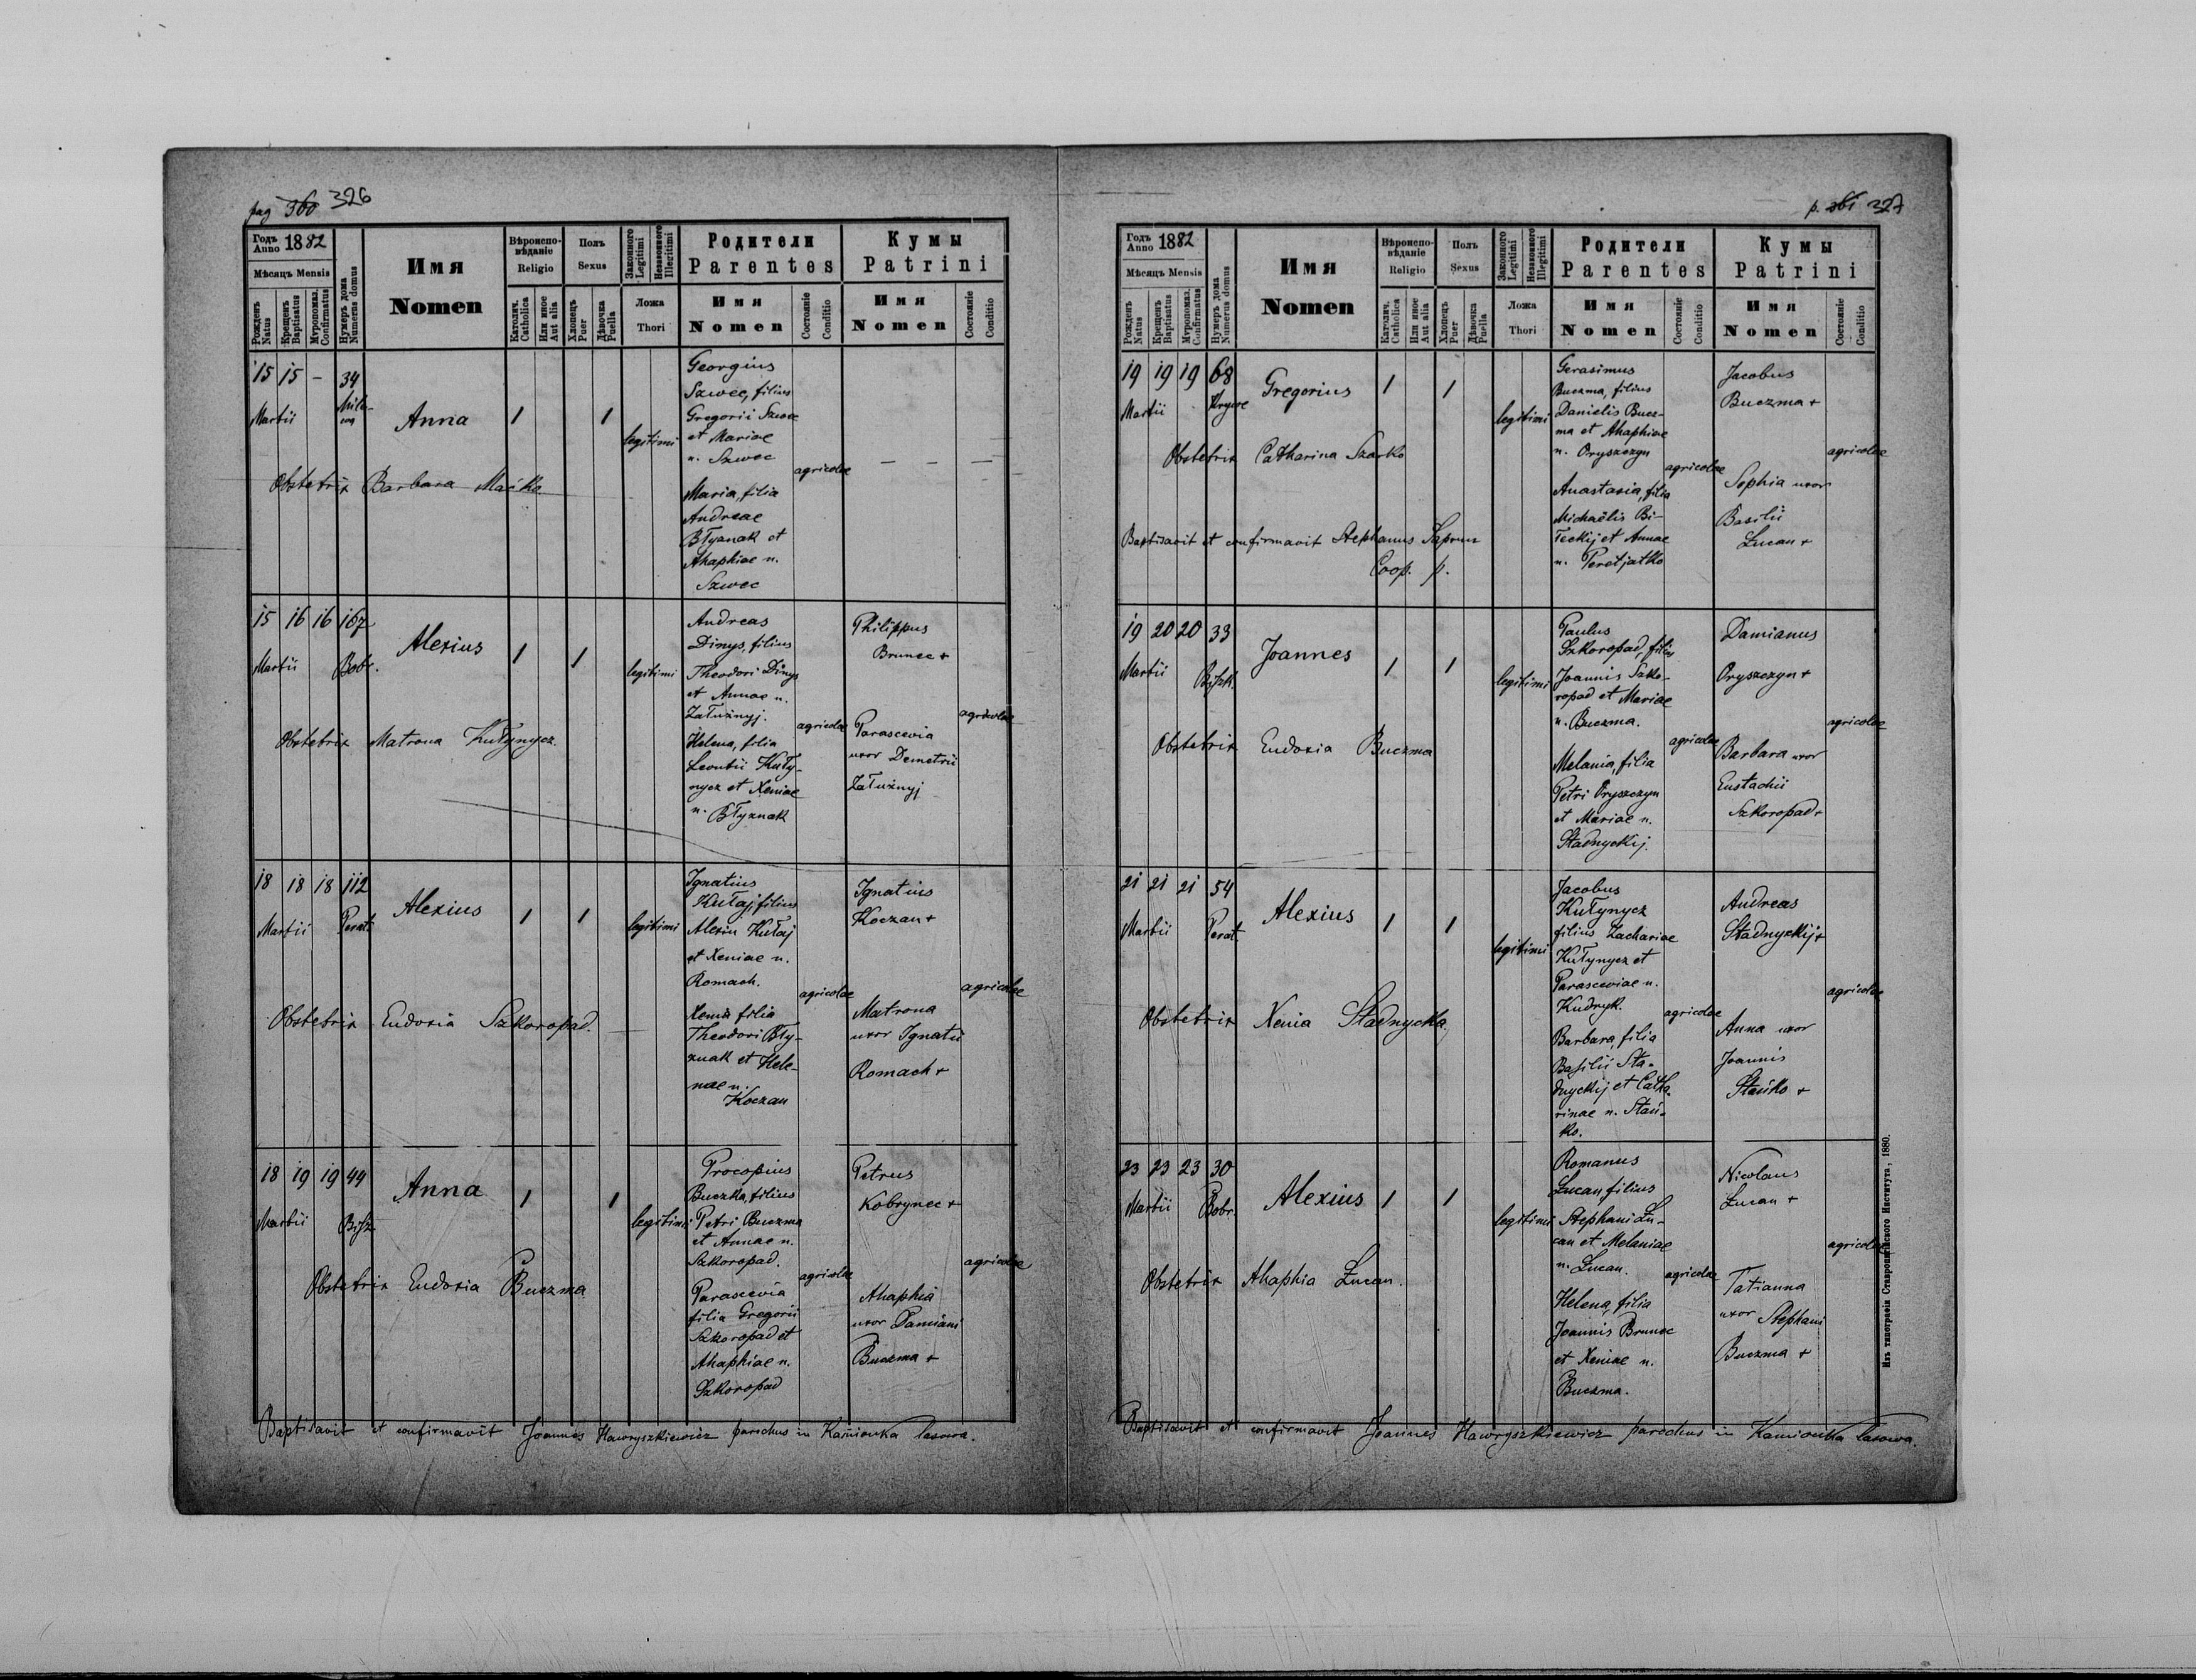 pag 360 326
Годъ Anno 1882
Мѣсяцъ Mensis
Рожденъ Natus
Крещенъ Baptisatus
Мѵропомаз. Confirmatus
Нумеръ дома Numerus domus
Имя
Nomen
Вѣроиспо-
вѣданіе
Religio
Католич. Catholica
Или иное Aut alia
Полъ
Sexus
Хлопецъ Puer
Дѣвочка Puella
Законного Legitimi
Незаконного Illegitimi
Ложа
Thori
Родители
Parentes
Имя
Nomen
Состояніе Conditio
Кумы
Patrini
Имя
Nomen
Состояніе Conditio
15 15 – 34
Martii
Anna 1 1
legitimi
Georgius
Szwec, filius
Gregorii Szwec
et Mariae
n. Szwec
agricolae
Maria, filia
Andreae
Błyznak et
Ahaphiae n.
Szwec
– – – –
Obstetrix Barbara Mańko
15 16 16 167
Martii Bobr.
Alexius 1 1
legitimi
Andreas
Dinys, filius
Theodori Dinys
et Annae n.
Załużnyj.
agricolae
Helena, filia
Leontii Kuły-
nycz et Xeniae
n. Błyznak
Philippus
Brunec +
Parascevia
uxor Demetrii
Załużnyj
agricolae
Obstetrix Matrona Kułynycz.
18 18 18 112
Martii Perat.
Alexius 1 1
legitimi
Ignatius
Kułaj, filius
Alexii Kułaj
et Xeniae n.
Romach.
agricolae
Xenia filia
Theodori Bły-
znak et Hele-
nae n.
Koczan
Ignatius
Koczan +
Matrona
uxor Ignatii
Romach +
agricolae
Obstetrix Eudoxia Szkoropad.
18 19 19 44
Martii Bysz.
Anna 1 1
legitimi
Procopius
Buczma, filius
Petri Buczma
et Annae n.
Szkoropad.
agricolae
Parascevia
filia Gregorii
Szkoropad et
Ahaphiae n.
Szkoropad
Petrus
Kobrynec +
Ahaphia
uxor Damiani
Buczma +
agricolae
Obstetrix Eudoxia Buczma
Baptisavit et confirmavit Joannes Hawryszkiewicz parochus in Kamionka lasowa.
p. 361 327
Годъ Anno 1882
Мѣсяцъ Mensis
Рожденъ Natus
Крещенъ Baptisatus
Мѵропомаз. Confirmatus
Нумеръ дома Numerus domus
Имя
Nomen
Вѣроиспо-
вѣданіе
Religio
Католич. Catholica
Или иное Aut alia
Полъ
Sexus
Хлопецъ Puer
Дѣвочка Puella
Законного Legitimi
Незаконного Illegitimi
Ложа
Thori
Родители
Parentes
Имя
Nomen
Состояніе Conditio
Кумы
Patrini
Имя
Nomen
Состояніе Conditio
19 19 19 68
Martii
Gregorius 1 1
legitimi
Gerasimus
Buczma, filius
Danielis Bucz-
ma et Ahaphiae
n. Oryszczyn
agricolae
Anastasia, filia
Michaëlis Bi-
łeckij et Annae
n. Peretjatko
Jacobus
Buczma +
Sophia uxor
Basilii
Łucan +
agricolae
Obstetrix Catharina Szarko
Baptisavit et confirmavit Stephanus
Coop. p.
19 20 20 33
Martii Byszk.
Joannes 1 1
legitimi
Paulus
Szkoropad, filius
Joannis Szko-
ropad et Mariae
n. Buczma.
agricolae
Melania, filia
Petri Oryszczyn
et Mariae n.
Stadnyckij.
Damianus
Oryszczyn +
Barbara uxor
Eustachii
Szkoropad +
agricolae
Obstetrix Eudoxia Buczma
21 21 21 54
Martii Perat.
Alexius 1 1
legitimi
Jacobus
Kułynycz
filius Zachariae
Kułynycz et
Parasceviae n.
Kudryk.
agricolae
Barbara, filia
Basilii Sta-
dnyckij et Catha-
rinae n. Stań-
ko.
Andreas
Stadnyckij +
Anna uxor
Joannis
Stańko +
agricolae
Obstetrix Xenia Stadnycka.
23 23 23 30
Martii Bobr.
Alexius 1 1
legitimi
Romanus
Łucan filius
Stephani Łu-
can et Melaniae
n. Łucan.
agricolae
Helena, filia
Joannis Brunec
et Xeniae n.
Buczma.
Nicolaus
Łucan +
Tatianna
uxor Stephani
Buczma +
agricolae
Obstetrix Ahaphia Łucan.
Baptisavit et confirmavit Joannes Hawryszkiewicz parochus in Kamionka lasowa.
Изъ типографіи Ставропигійского Института, 1880.